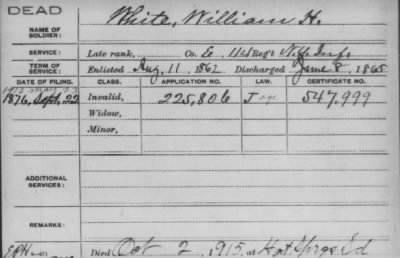 DEAD
NAME OF SOLDIER: White, William H.
SERVICE: Late rank, Co. G 114 Reg't N.Y. Inf.
TERM OF SERVICE: Enlisted Aug. 11, 1862 Discharged June 8, 1865
DATE OF FILING. CLASS. APPLICATION NO. LAW. CERTIFICATE NO.
1876, Sept. 22 Invalid, 225,806 547,999
Widow,
Minor,
ADDITIONAL SERVICES:
REMARKS:
Died Oct 2, 1915, at Hot Sprgs S.d